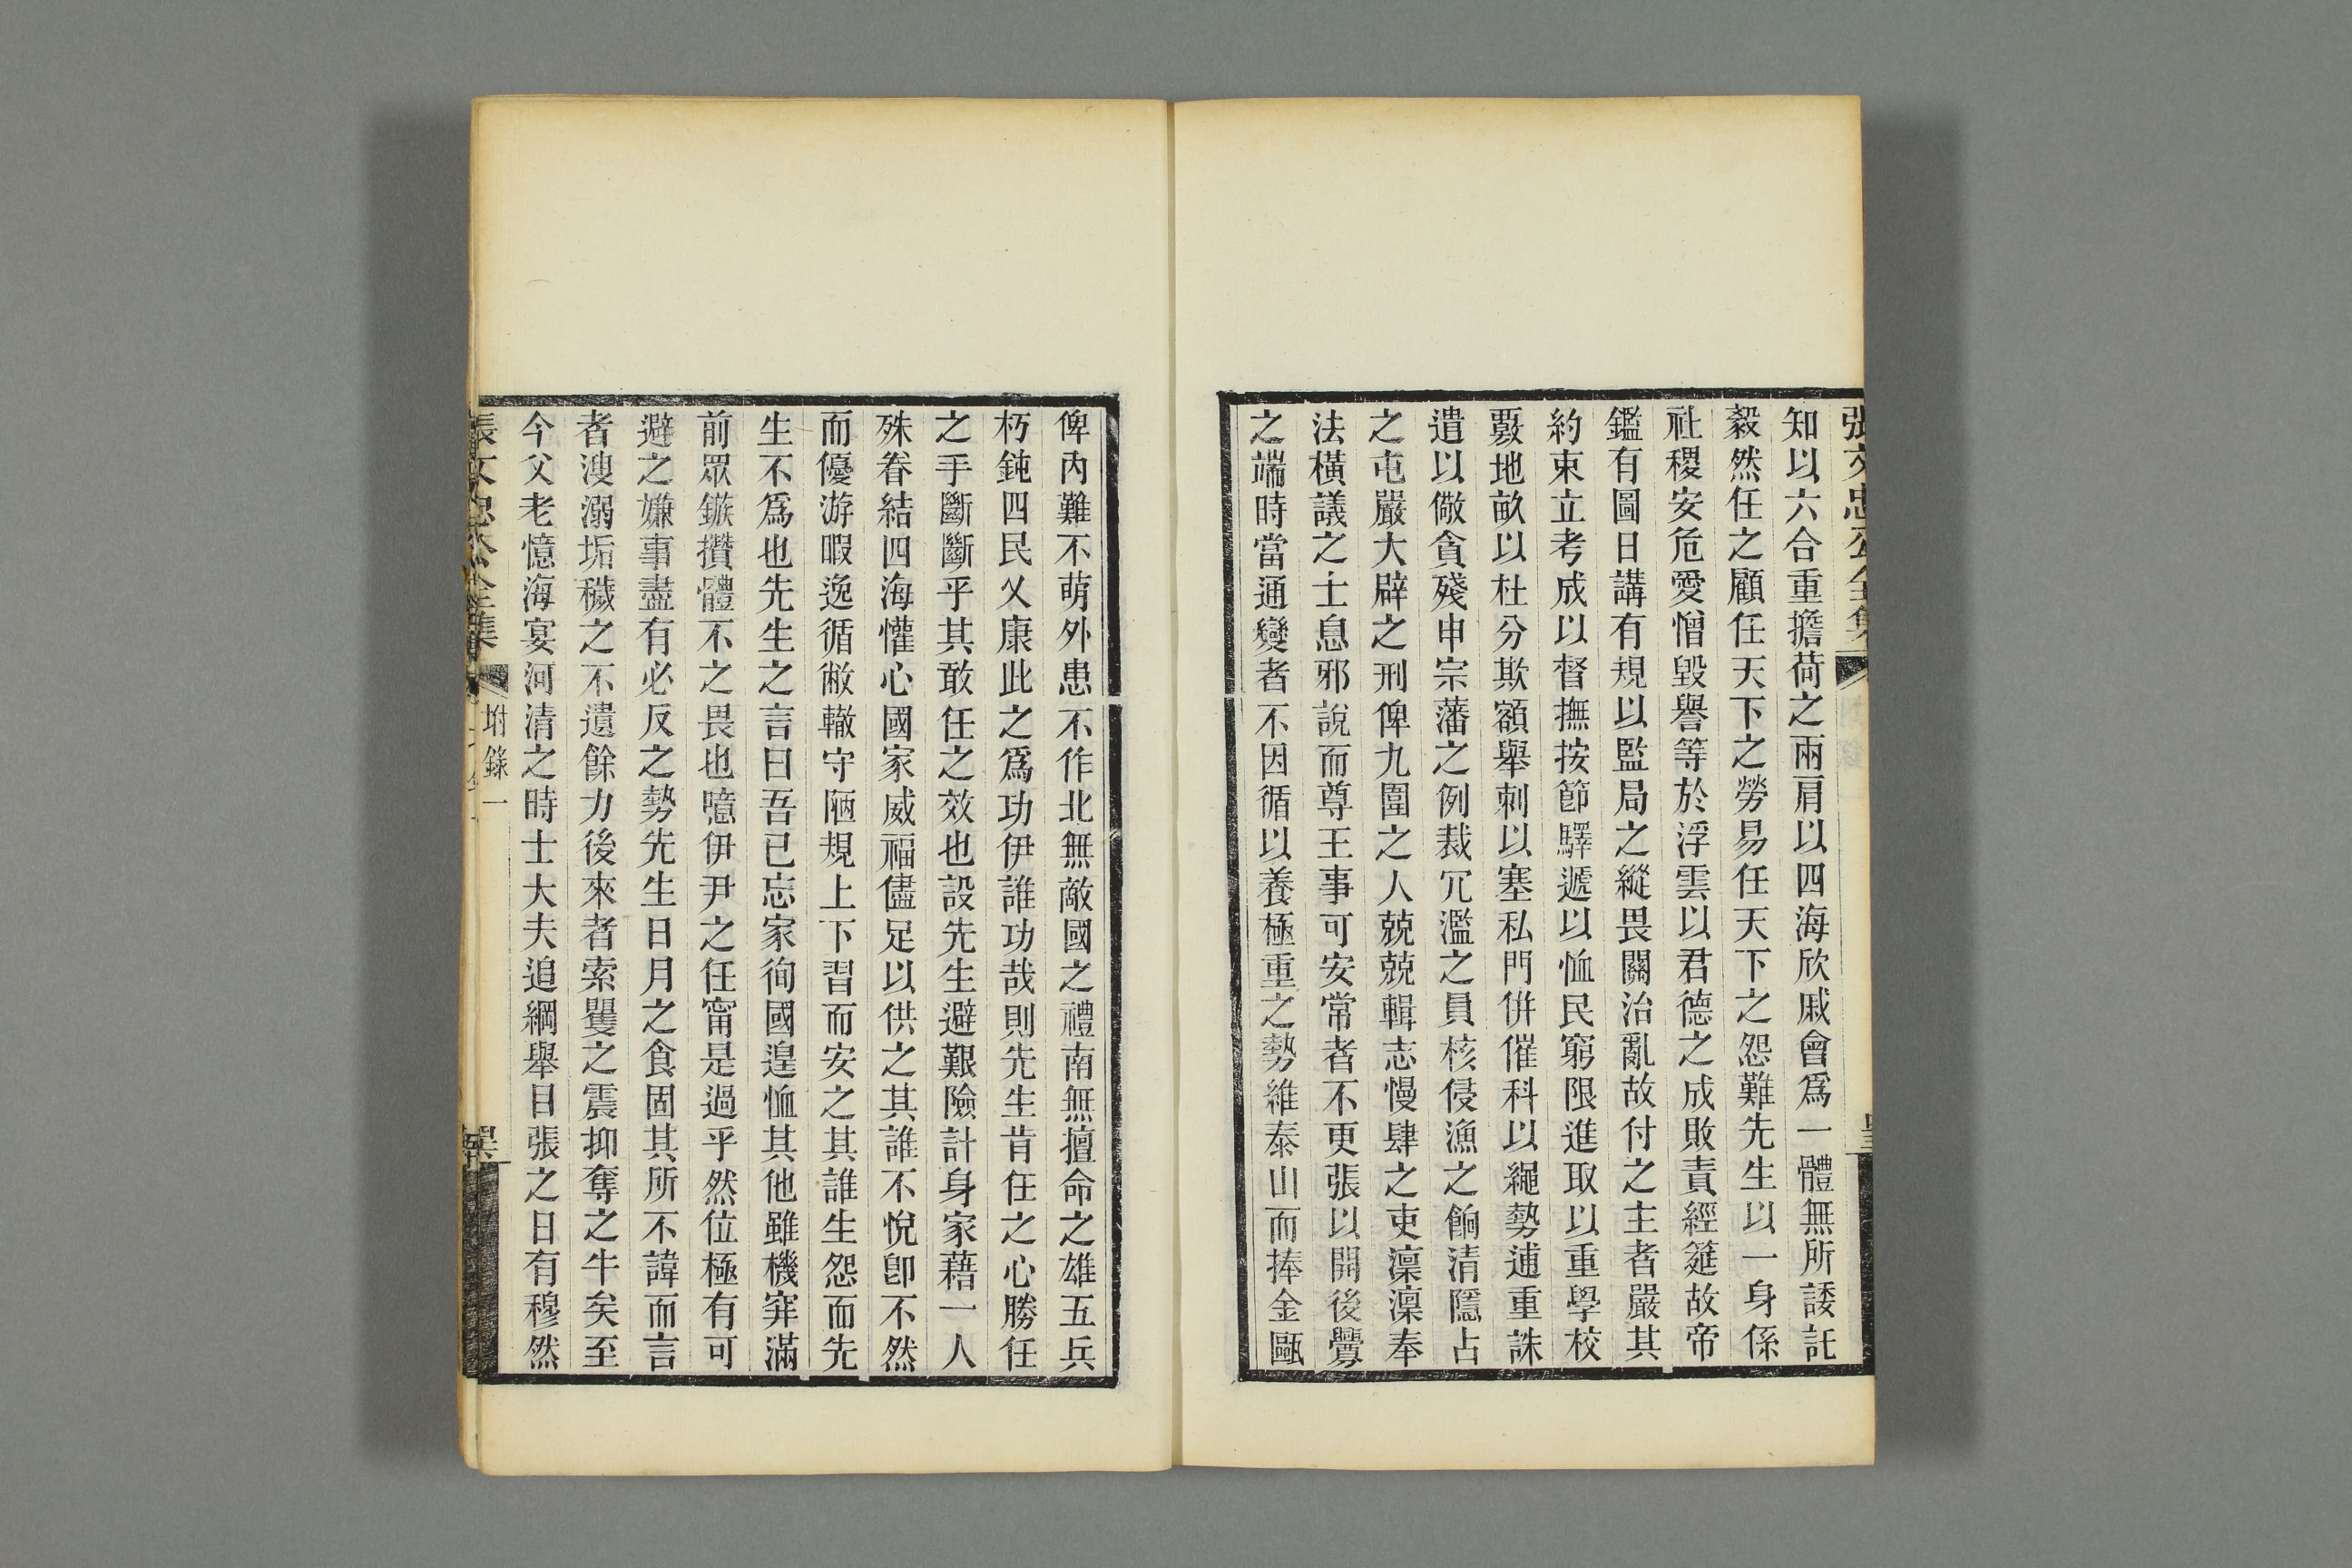 張文忠公全集
知以六合重擔荷之兩肩以四海欣戚會爲一體無所諉託
毅然任之顧任天下之勞易任天下之怨難先生以一身係
社稷安危愛憎毀譽等於浮雲以君德之成敗責經筵故帝
鑑有圖日講有規以監局之縱畏關治亂故付之主者嚴其
約束立考成以督撫按節驛遞以恤民窮限進取以重學校
覈地畝以杜分欺額舉刺以塞私門倂催科以繩勢逋重誅
遣以儆貪殘申宗藩之例裁冗濫之員核侵漁之餉清隱占
之屯嚴大辟之刑俾九圍之人兢兢輯志慢肆之吏凜凜奉
法橫議之士息邪說而尊王事可安常者不更張以開後釁
之端時當通變者不因循以養極重之勢維泰山而捧金甌
俾內難不萌外患不作北無敵國之禮南無擅命之雄五兵
朽鈍四民乂康此之爲功伊誰功哉則先生肯任之心勝任
之手斷斷乎其敢任之效也設先生避艱險計身家藉一人
殊眷結四海懽心國家威福儘足以供之其誰不悅卽不然
而優游暇逸循敝轍守陋規上下習而安之其誰生怨而先
生不爲也先生之言曰吾已忘家徇國遑恤其他雖機穽滿
前眾鏃攢體不之畏也噫伊尹之任甯是過乎然位極有可
避之嫌事盡有必反之勢先生日月之食固其所不諱而言
者溲溺垢穢之不遺餘力後來者索瞿之震抑奪之牛矣至
今父老憶海宴河清之時士大夫追綱舉目張之日有穆然
張文忠公全集
坿錄一